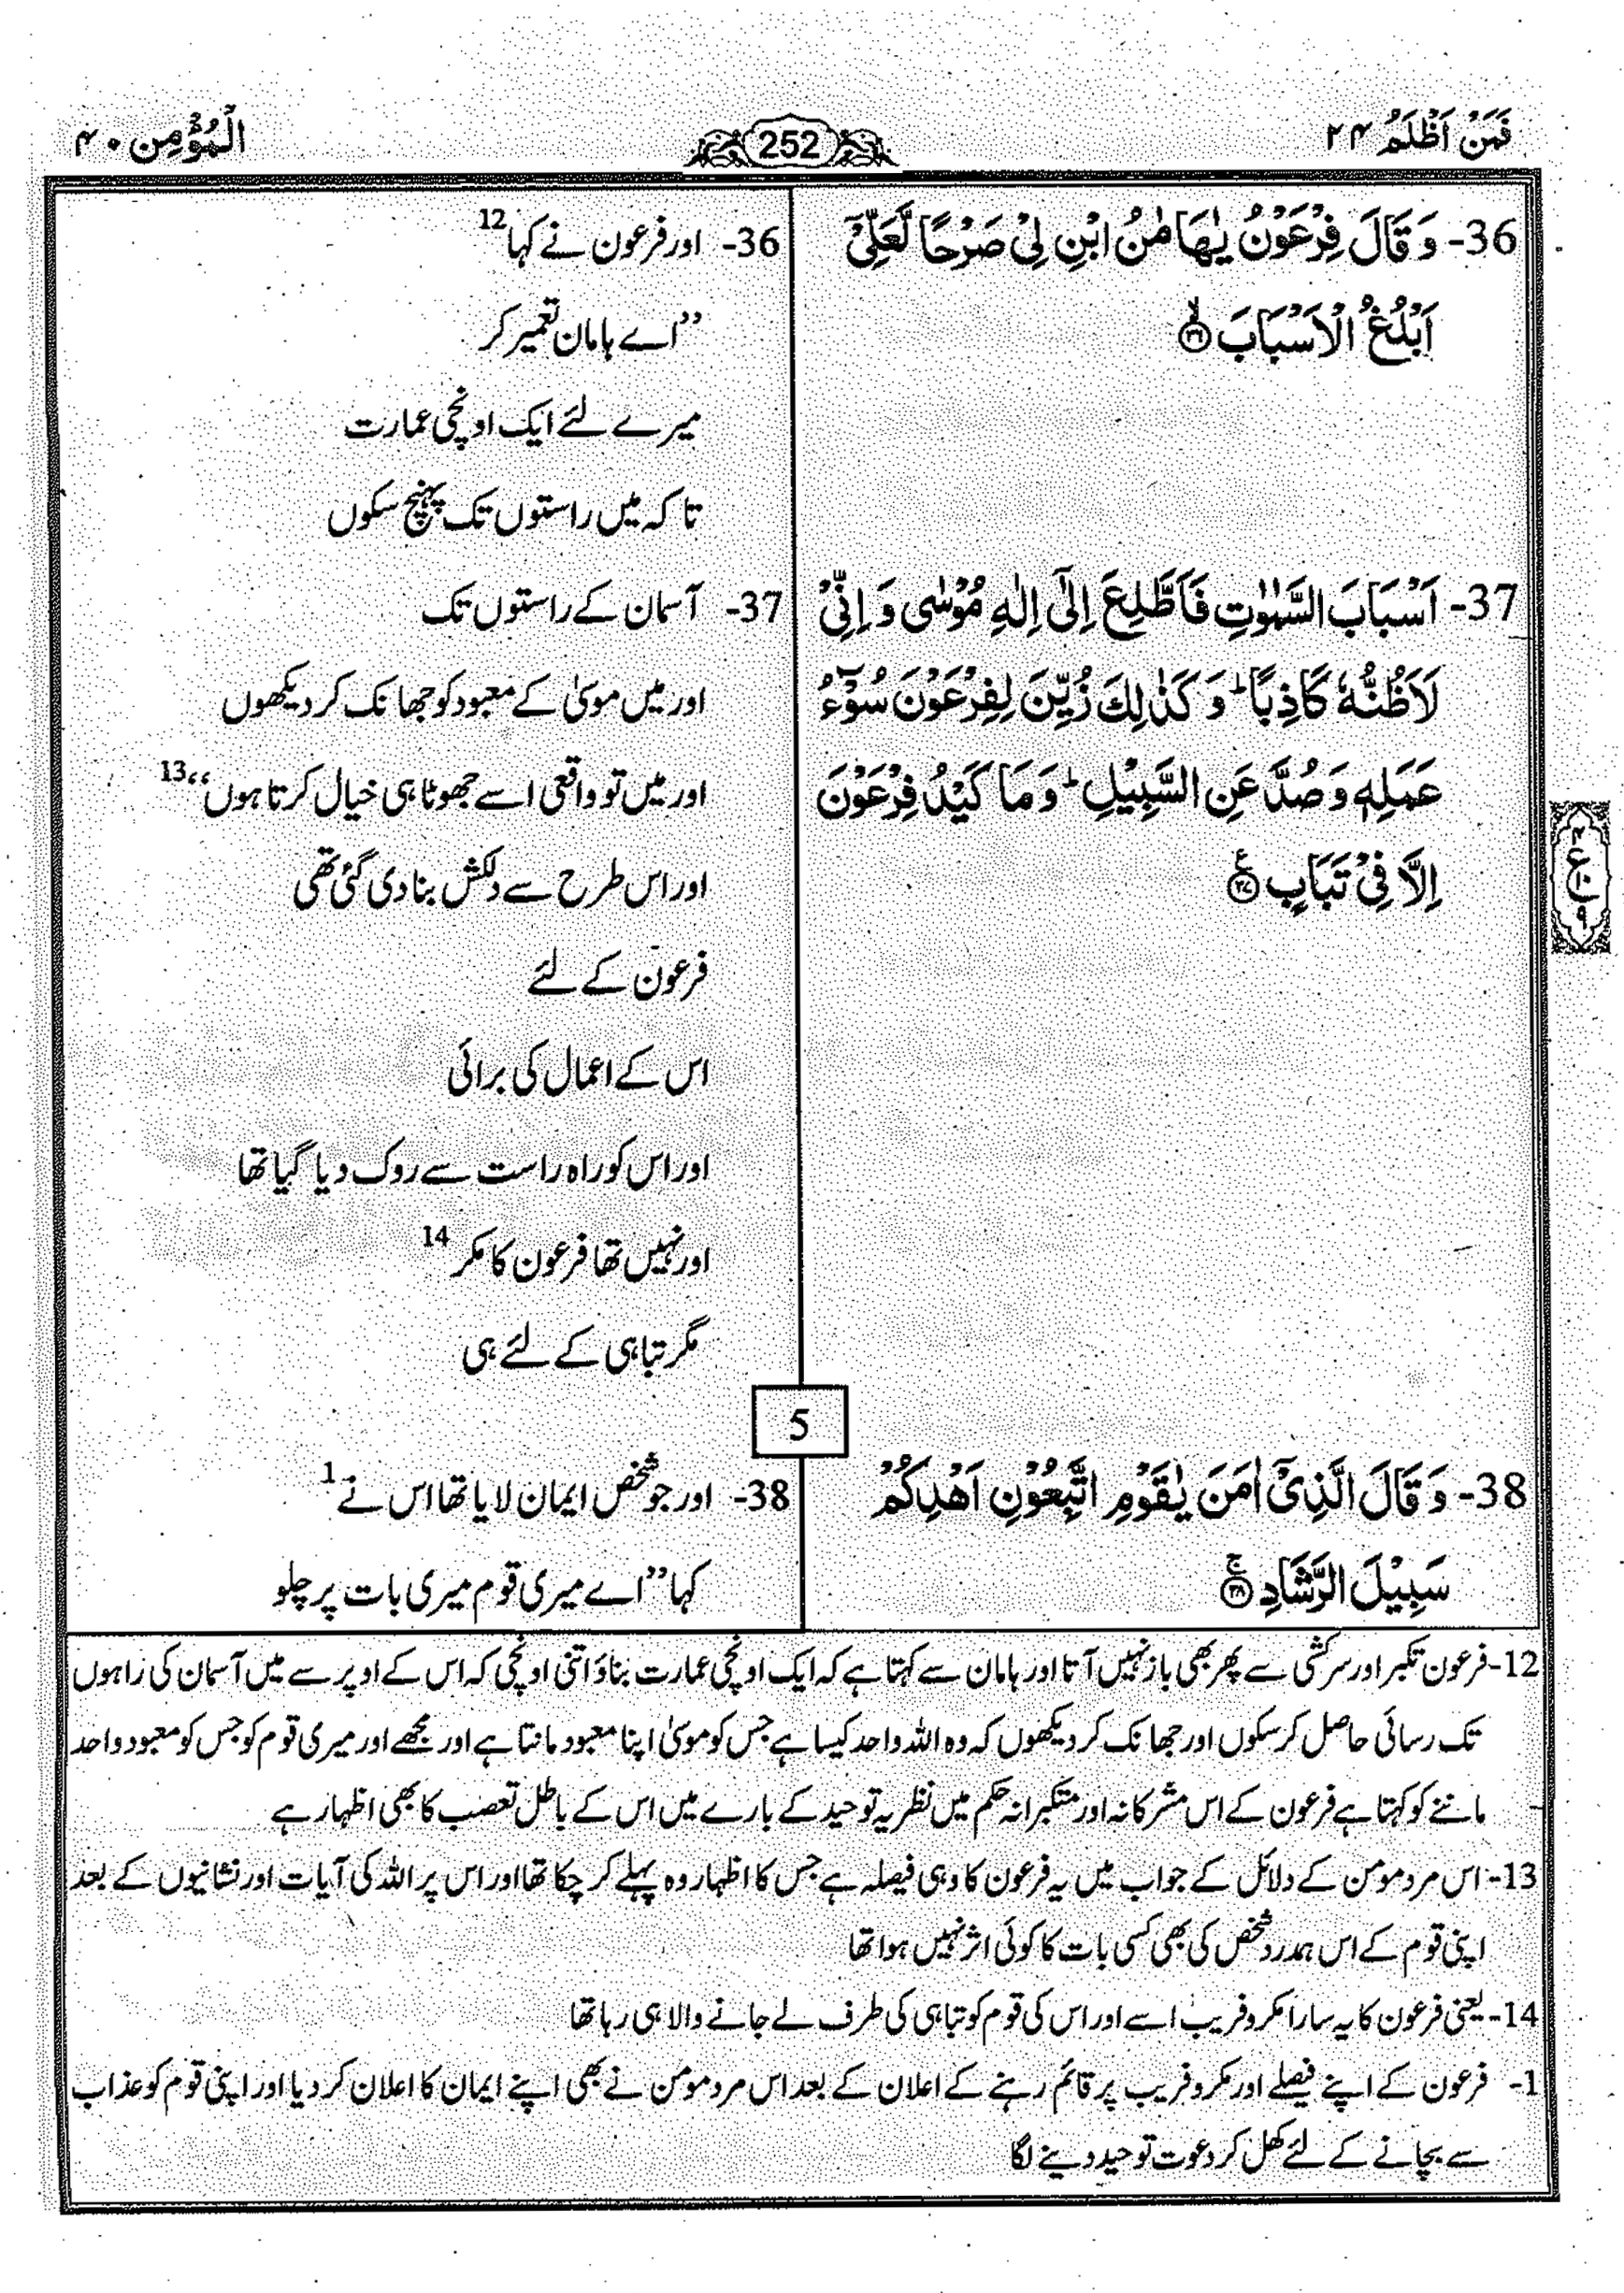 فَمَنْ اَظْلَمُ ۲۴
252
الْمُؤْمِن ۴۰
36- وَ قَالَ فِرْعَوْنُ یٰهَامٰنُ ابْنِ لِیْ صَرْحًا لَّعَلِّیْۤ
اَبْلُغُ الْاَسْبَابَ ۙ﴿۳۶﴾
37- اَسْبَابَ السَّمٰوٰتِ فَاَطَّلِعَ اِلٰۤی اِلٰهِ مُوْسٰی وَ اِنِّیْ
لَاَظُنُّهٗ كَاذِبًا ؕ وَ كَذٰلِكَ زُیِّنَ لِفِرْعَوْنَ سُوْٓءُ
عَمَلِهٖ وَ صُدَّ عَنِ السَّبِیْلِ ؕ وَ مَا كَیْدُ فِرْعَوْنَ
اِلَّا فِیْ تَبَابٍ ﴿۳۷﴾ ع
38- وَ قَالَ الَّذِیْۤ اٰمَنَ یٰقَوْمِ اتَّبِعُوْنِ اَهْدِكُمْ
سَبِیْلَ الرَّشَادِ ﴿۳۸﴾ ج
36- اور فرعون نے کہا 12
’’اے ہامان تعمیر کر
میرے لئے ایک اونچی عمارت
تا کہ میں راستوں تک پہنچ سکوں
37- آسمان کے راستوں تک
اور میں موسیٰ کے معبود کو جھانک کر دیکھوں
اور میں تو واقعی اسے جھوٹا ہی خیال کرتا ہوں‘‘ 13
اور اس طرح سے دلکش بنا دی گئی تھی
فرعون کے لئے
اس کے اعمال کی برائی
اور اس کو راہ راست سے روک دیا گیا تھا
اور نہیں تھا فرعون کا مکر 14
مگر تباہی کے لئے ہی
5
38- اور جو شخص ایمان لایا تھا اس نے 1
کہا ’’اے میری قوم میری بات پر چلو
12- فرعون تکبر اور سرکشی سے پھر بھی باز نہیں آتا اور ہامان سے کہتا ہے کہ ایک اونچی عمارت بناؤ اتنی اونچی کہ اس کے اوپر سے میں آسمان کی راہوں
تک رسائی حاصل کر سکوں اور جھانک کر دیکھوں کہ وہ اللہ واحد کیسا ہے جس کو موسیٰ اپنا معبود مانتا ہے اور مجھے اور میری قوم کو جس کو معبود واحد
ماننے کو کہتا ہے فرعون کے اس مشرکانہ اور متکبرانہ حکم میں نظریہ توحید کے بارے میں اس کے باطل تعصب کا بھی اظہار ہے
13- اس مرد مومن کے دلائل کے جواب میں یہ فرعون کا وہی فیصلہ ہے جس کا اظہار وہ پہلے کر چکا تھا اور اس پر اللہ کی آیات اور نشانیوں کے بعد
اپنی قوم کے اس ہمدرد شخص کی بھی کسی بات کا کوئی اثر نہیں ہوا تھا
14- یعنی فرعون کا یہ سارا مکر و فریب اسے اور اس کی قوم کو تباہی کی طرف لے جانے والا ہی رہا تھا
1- فرعون کے اپنے فیصلے اور مکر و فریب پر قائم رہنے کے اعلان کے بعد اس مرد مومن نے بھی اپنے ایمان کا اعلان کر دیا اور اپنی قوم کو عذاب
سے بچانے کے لئے کھل کر دعوت توحید دینے لگا